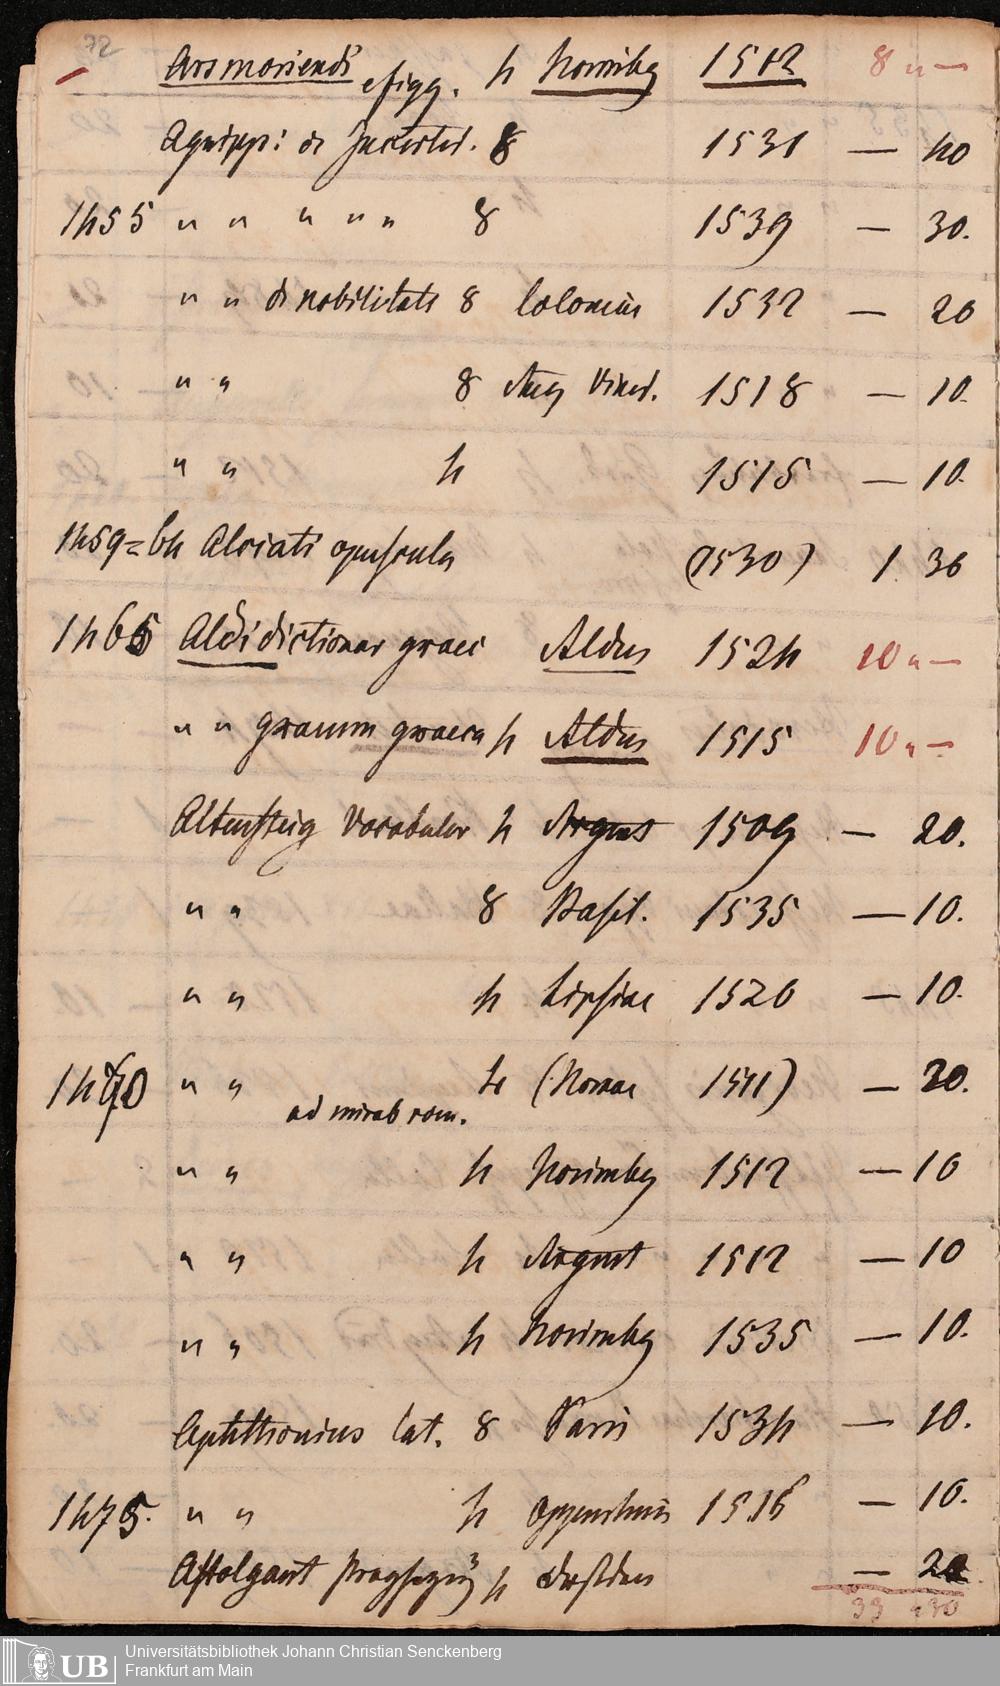 72
Ars moriendi c figg. 4 Norimbg 1512 8 " —
Agripp: de Incertid. 8 1531 — 40
1455 " " " " " 8 1539 — 30.
" " de nobilitate 8 Coloniae 1532 — 20
" " 8 Aug Vind. 1518 — 10.
" " 4 1515 — 10.
1459=64 Alciati opuscula (1530) 1 36
1465 Aldi dictionar graec Aldus 1524 10 " —
" " gramm graeca 4 Aldus 1515 10 " —
Altensteig Vocabular 4 Argent 1509 — 20.
" " 8 Basil. 1535 — 10.
" " 4 Lipsiae 1520 — 10.
1470 " " 4 (Romae 1511) — 20.
ad mirab rom.
" " 4 Norimbg 1512 — 10
" " 4 Argent 1512 — 10
" " 4 Norimbg 1535 — 10.
Aphthonius lat. 8 Paris 1534 — 10.
1475. " " 4 Oppenheim 1516 — 10.
4 Dresden — 20
33 " 30
Universitätsbibliothek Johann Christian Senckenberg
Frankfurt am Main
UB